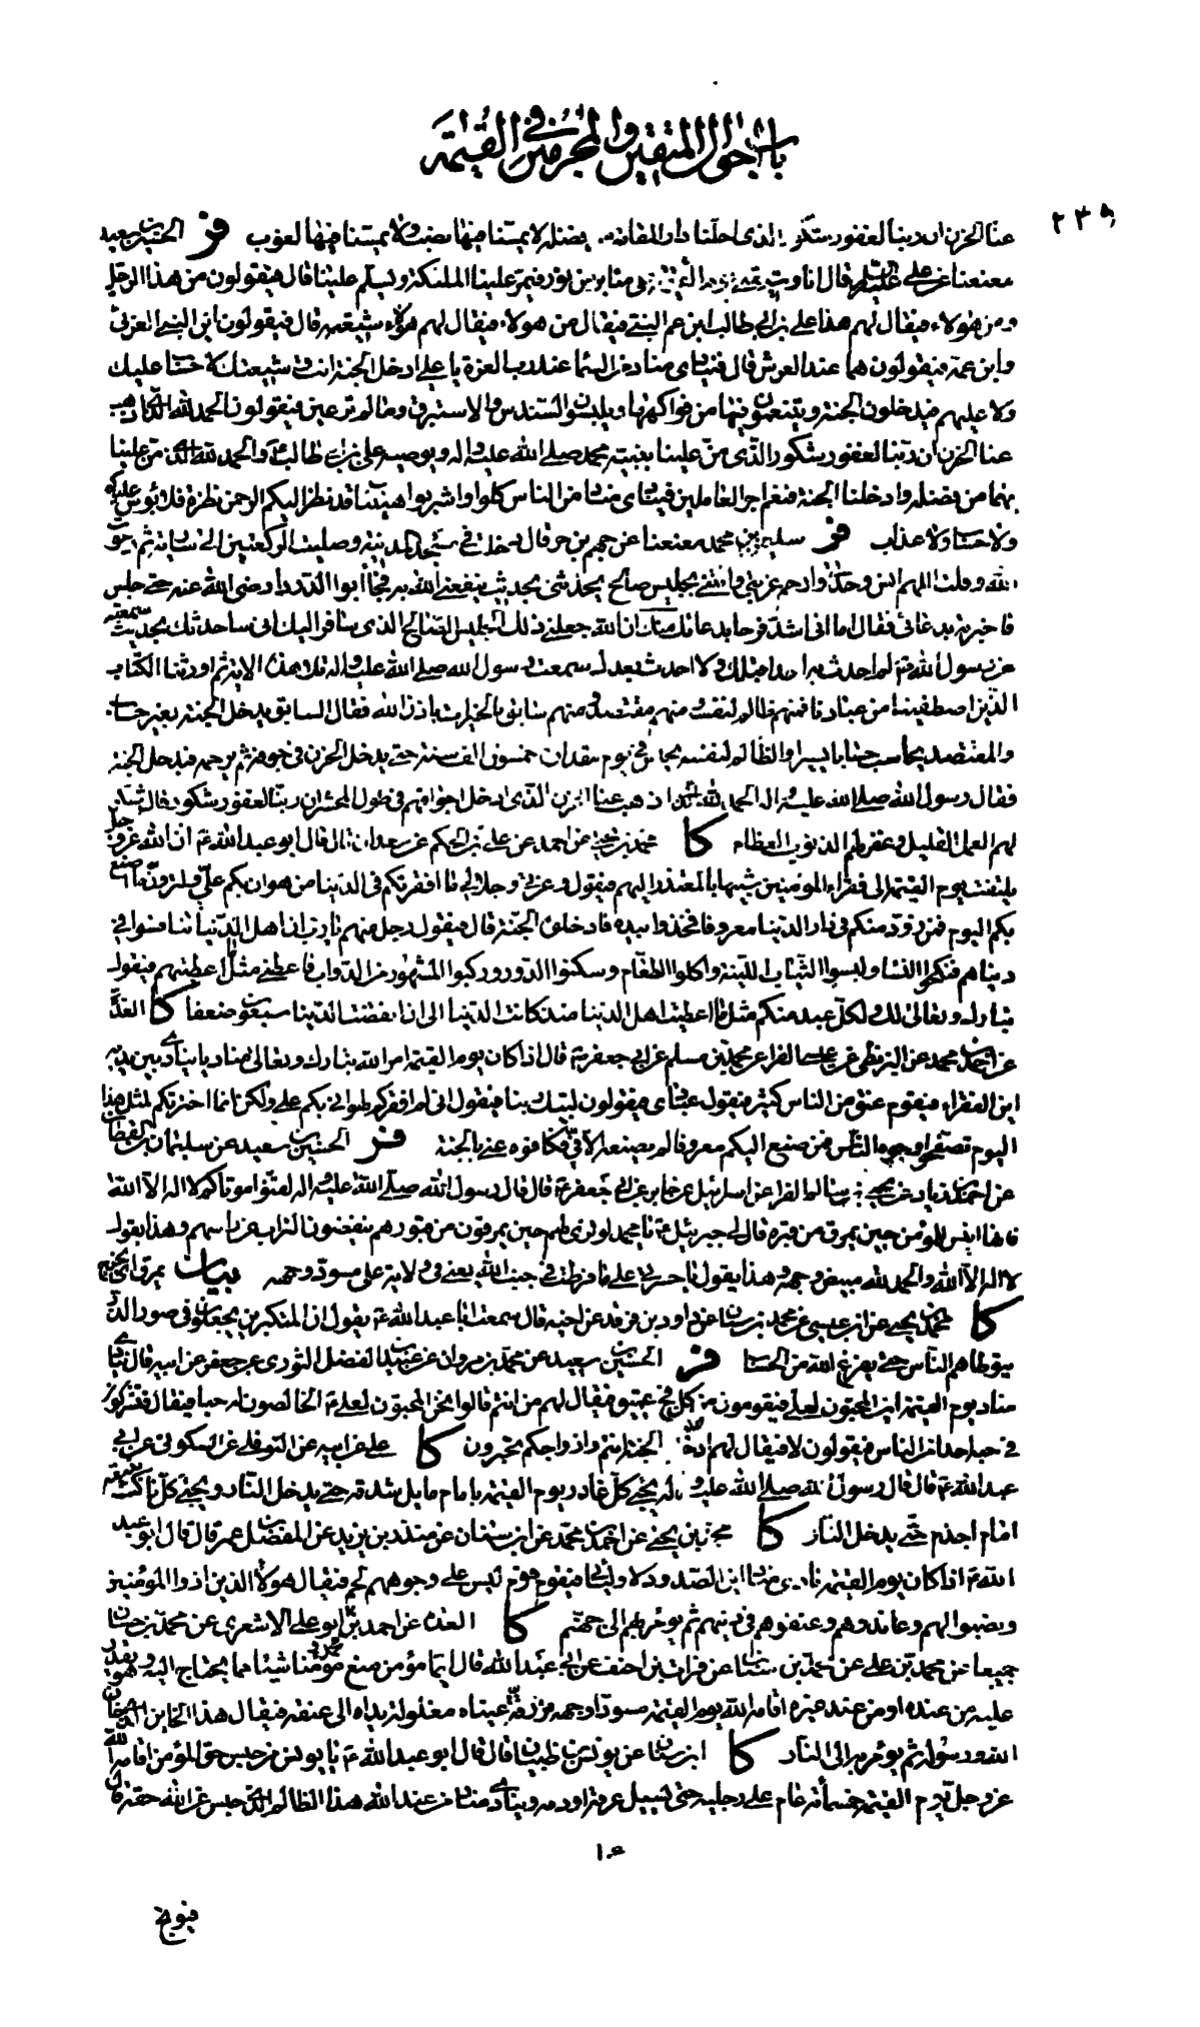 باب احوال المتقين والمجرمين في القيمة
٢٣٥
عنا الحزن ان ربنا لغفور شكور الذى احلنا دار المقامة من فضله لا يمسنا فيها نصب ولا يمسنا فيها لغوب فر الحسين بن سعيد
معنعنا عن على عليه السلم قال انا وشيعتى على منابر من نور فيمر علينا الملئكة ويسلم علينا قال فيقولون من هذا الرجل
ومن هؤلاء فيقال لهم هذا على بن ابى طالب ابن عم النبى فيقال من هولاء فيقال لهم هؤلاء شيعته قال فيقولون اين النبى العربى
وابن عمه فيقولون هما عند العرش قال فينادى مناد من السماء عند رب العزة يا على ادخل الجنة انت وشيعتك لا حساب عليك
ولا عليهم فيدخلون الجنة ويتنعمون فيها من فواكهها ويلبسون السندس والاستبرق وما لم تر عين فيقولون الحمد لله الذى اذهب
عنا الحزن ان ربنا لغفور شكور الذى من علينا بنبيه محمد صلى الله عليه واله وبوصيه على بن ابى طالب والحمد لله الذى من علينا
بهما من فضله وادخلنا الجنة فنعم اجر العاملين فينادى مناد من الناس كلوا واشربوا هنيئا قد نظر اليكم الرحمن نظرة فلا بؤس عليكم
ولا حساب ولا عذاب فر سليمن بن محمد معنعنا عن جهم بن حر قال دخلت فى مسجد المدينة وصليت الركعتين الى سارية ثم دعوت
الله وقلت اللهم انس وحدتى وارحم غربتى وائتنى بجليس صالح يحدثنى بحديث ينفعنى الله به فجاء ابو الدرداء رضى الله عنه حتى جلس
فاخبرته بدعائى فقال اما انى اشد فرحا بدعائك منك ان الله جعلنى ذلك الجليس الصالح الذى ساقه اليك انى ساحدثك بحديث سمعته
عن رسول الله ص لم احدث به احدا قبلك ولا احدث بعدك سمعت رسول الله صلى الله عليه واله تلا هذه الاية ثم اورثنا الكتاب
الذين اصطفينا من عبادنا فمنهم ظالم لنفسه ومنهم مقتصد ومنهم سابق بالخيرات باذن الله فقال السابق يدخل الجنة بغير حساب
والمقتصد يحاسب حسابا يسيرا والظالم لنفسه يحبس فى يوم مقداره خمسون الف سنة حتى يدخل الحزن فى جوفه ثم يرحمه فيدخل الجنة
فقال رسول الله صلى الله عليه واله الحمد لله الذى اذهب عنا الحزن الذى ادخل اجوافهم فى طول المحشر ان ربنا لغفور شكور قال شكر
لهم العمل القليل وغفر لهم الذنوب العظام كا محمد بن يحيى عن احمد عن على بن الحكم عن سعدان قال قال ابو عبد الله ع ان الله عز وجل
يلتفت يوم القيمة الى فقراء المؤمنين شبيها بالمعتذر اليهم فيقول وعزتى وجلالى ما افقرتكم فى الدنيا من هوان بكم على ولترون ما اصنع
بكم اليوم فمن زود منكم فى دار الدنيا معروفا فخذوا بيده فادخلوه الجنة قال فيقول رجل منهم يا رب ان اهل الدنيا تنافسوا فى
دنياهم فنكحوا النساء ولبسوا الثياب اللينة واكلوا الطعام وسكنوا الدور وركبوا المشهور من الدواب فاعطنى مثل ما اعطيتهم فيقول
تبارك وتعالى لك ولكل عبد منكم مثل ما اعطيت اهل الدنيا منذ كانت الدنيا الى ان انقضت الدنيا سبعون ضعفا كا العدة
عن احمد بن محمد عن البزنطى عن عيسى الفراء عن محمد بن مسلم عن ابى جعفر ع قال اذا كان يوم القيمة امر الله تبارك وتعالى مناديا ينادى بين يديه
اين الفقراء فيقوم عنق من الناس كثير فيقول عبادى فيقولون لبيك ربنا فيقول انى لم افقركم لهوان بكم على ولكن انما اخترتكم لمثل هذا
اليوم تصفحوا وجوه الناس فمن صنع اليكم معروفا لم يصنعه الا فى فكافوه عنى بالجنة فر الحسين بن سعيد عن سليمان القطان
عن احمد بن زياد عن يحيى بن سالم الفراء عن اسرائيل عن جابر عن ابى جعفر ع قال قال رسول الله صلى الله عليه واله لقنوا موتاكم لا اله الا الله
فانها انيس للمؤمن حين يمرق من قبره قال لى جبرئيل ع يا محمد لو ترى لهم حين يمرقون من قبورهم ينفضون التراب عن راسهم وهذا يقول
لا اله الا الله والحمد لله مبيض وجهه وهذا يقول يا حسرتا على ما فرطت فى جنب الله يعنى فى ولاية على مسود وجهه بيان يمرق اى يخرج
كا محمد بن يحيى عن ابن عيسى عن محمد بن سنان عن داود بن فرقد عن اخيه قال سمعت ابا عبد الله ع يقول ان المتكبرين يجعلون فى صور الذر
يتوطاهم الناس حتى يفرغ الله من الحساب فر الحسين بن سعيد عن محمد بن مروان عن عبيد بن الفضل الثورى عن جعفر عن ابيه قال ينادى
مناد يوم القيمة اين المحبون لعلى فيقومون من كل فج عميق فيقال لهم من انتم قالوا نحن المحبون لعلى ع الخالصون له حبا فيقال فتشركون
فى حبه احدا من الناس فيقولون لا فيقال لهم ادخلوا الجنة انتم وازواجكم تحبرون كا على عن ابيه عن النوفلى عن السكونى عن ابى
عبد الله ع قال قال رسول الله صلى الله عليه واله يجئ كل غادر يوم القيمة بامام مايل شدقه حتى يدخل النار ويجئ كل ناكث بيعة
امام اجذم حتى يدخل النار كا محمد بن يحيى عن احمد بن محمد عن ابن سنان عن منذر بن يزيد عن المفضل بن عمر قال قال ابو عبد
الله ع اذا كان يوم القيمة نادى مناد اين الصدود لاوليائى فيقوم قوم ليس على وجوههم لحم فيقال هولاء الذين اذوا المؤمنين
ونصبوا لهم وعاندوهم وعنفوهم فى دينهم ثم يؤمر بهم الى جهنم كا العدة عن احمد بن محمد وابو على الاشعرى عن محمد بن حسان
جميعا عن محمد بن على عن محمد بن سنان عن فرات بن احنف عن ابى عبد الله قال ايما مؤمن منع مؤمنا شيئا مما يحتاج اليه وهو يقدر
عليه من عنده او من عند غيره اقامه الله يوم القيمة مسودا وجهه مزرقة عيناه مغلولة يداه الى عنقه فيقال هذا الخاين الذى خان
الله ورسوله ثم يؤمر به الى النار كا ابن سنان عن يونس بن ظبيان قال قال ابو عبد الله ع يا يونس من حبس حق المؤمن اقامه الله
عز وجل يوم القيمة خمسمائة عام على رجليه حتى يسيل عرقه او دمه وينادى مناد من عند الله هذا الظالم الذى حبس عن الله حقه قال
١٠٥
فيوبخ